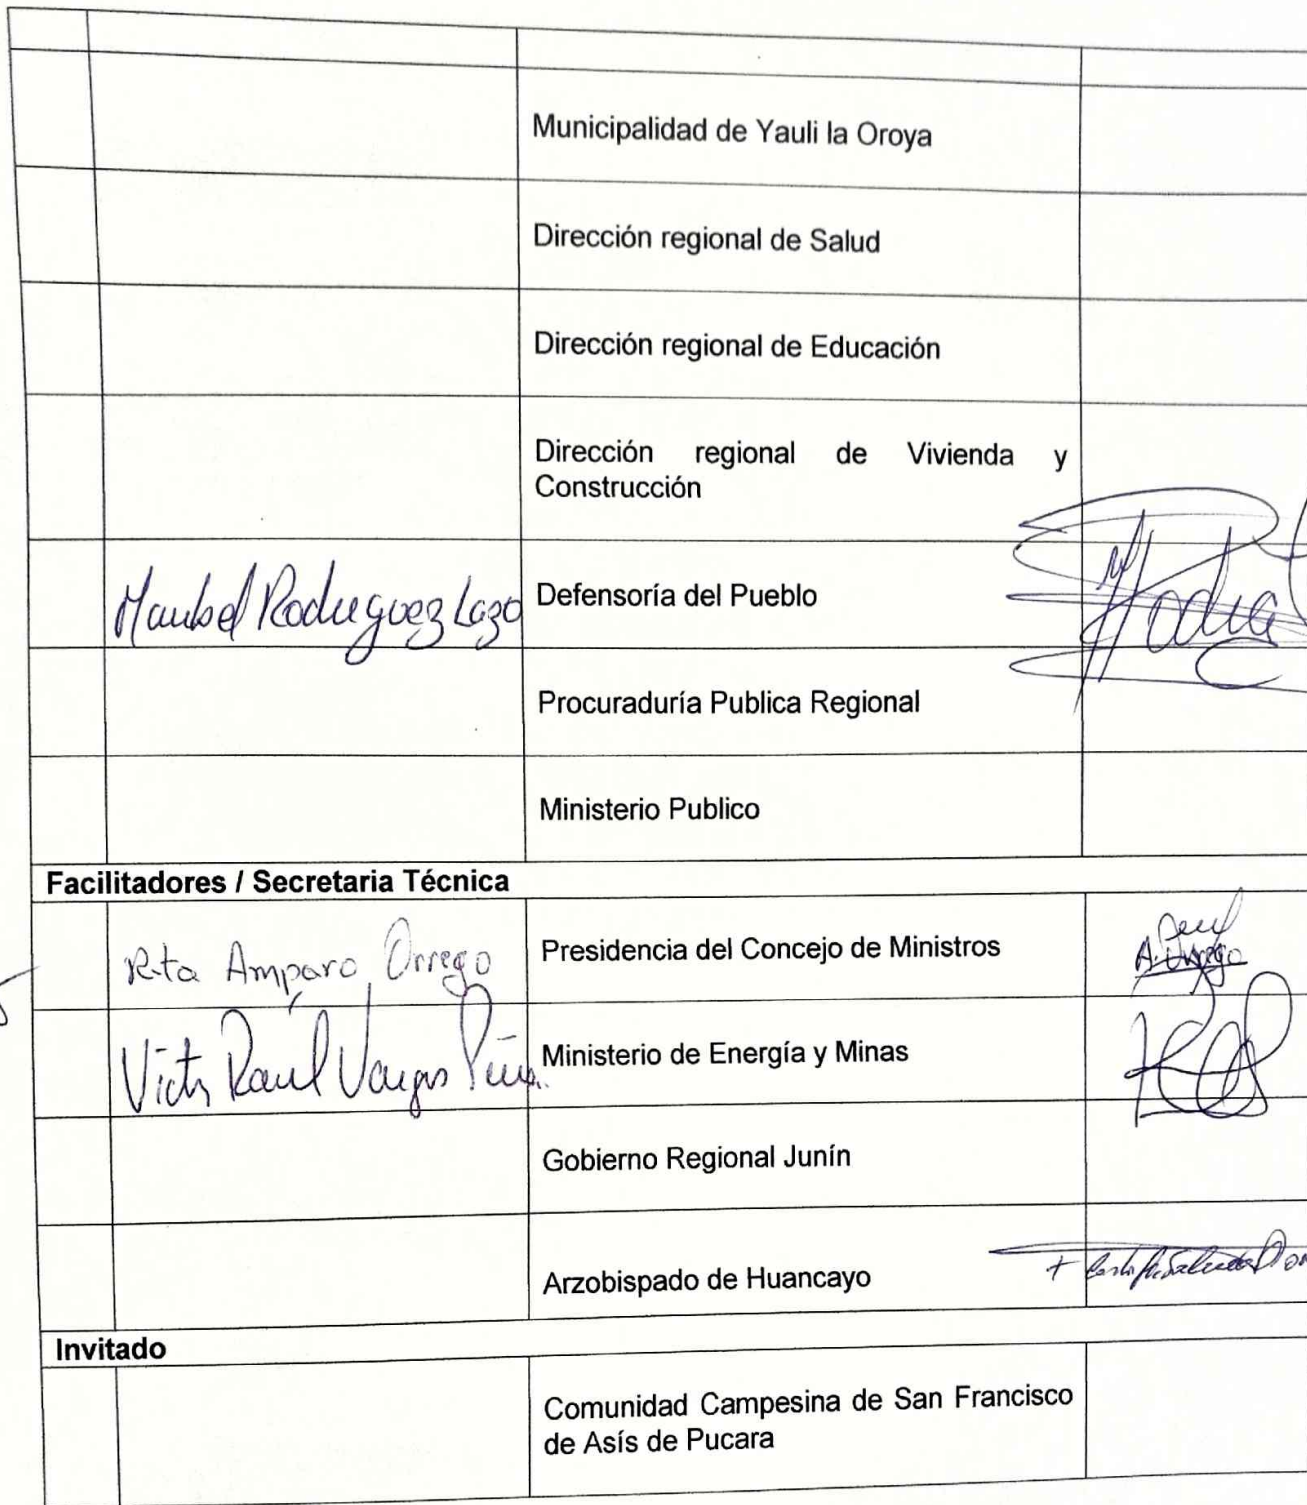 Municipalidad de Yauli la Oroya
Dirección regional de Salud
Dirección regional de Educación
Dirección regional de Vivienda y
Construcción
Maribel Rodriguez Lazo
Defensoría del Pueblo
Procuraduría Publica Regional
Ministerio Publico
Facilitadores / Secretaria Técnica
Rita Amparo Orrego
Presidencia del Concejo de Ministros
A. Orrego
Victor Raúl Vargas
Ministerio de Energía y Minas
Gobierno Regional Junín
Arzobispado de Huancayo
Invitado
Comunidad Campesina de San Francisco
de Asís de Pucara